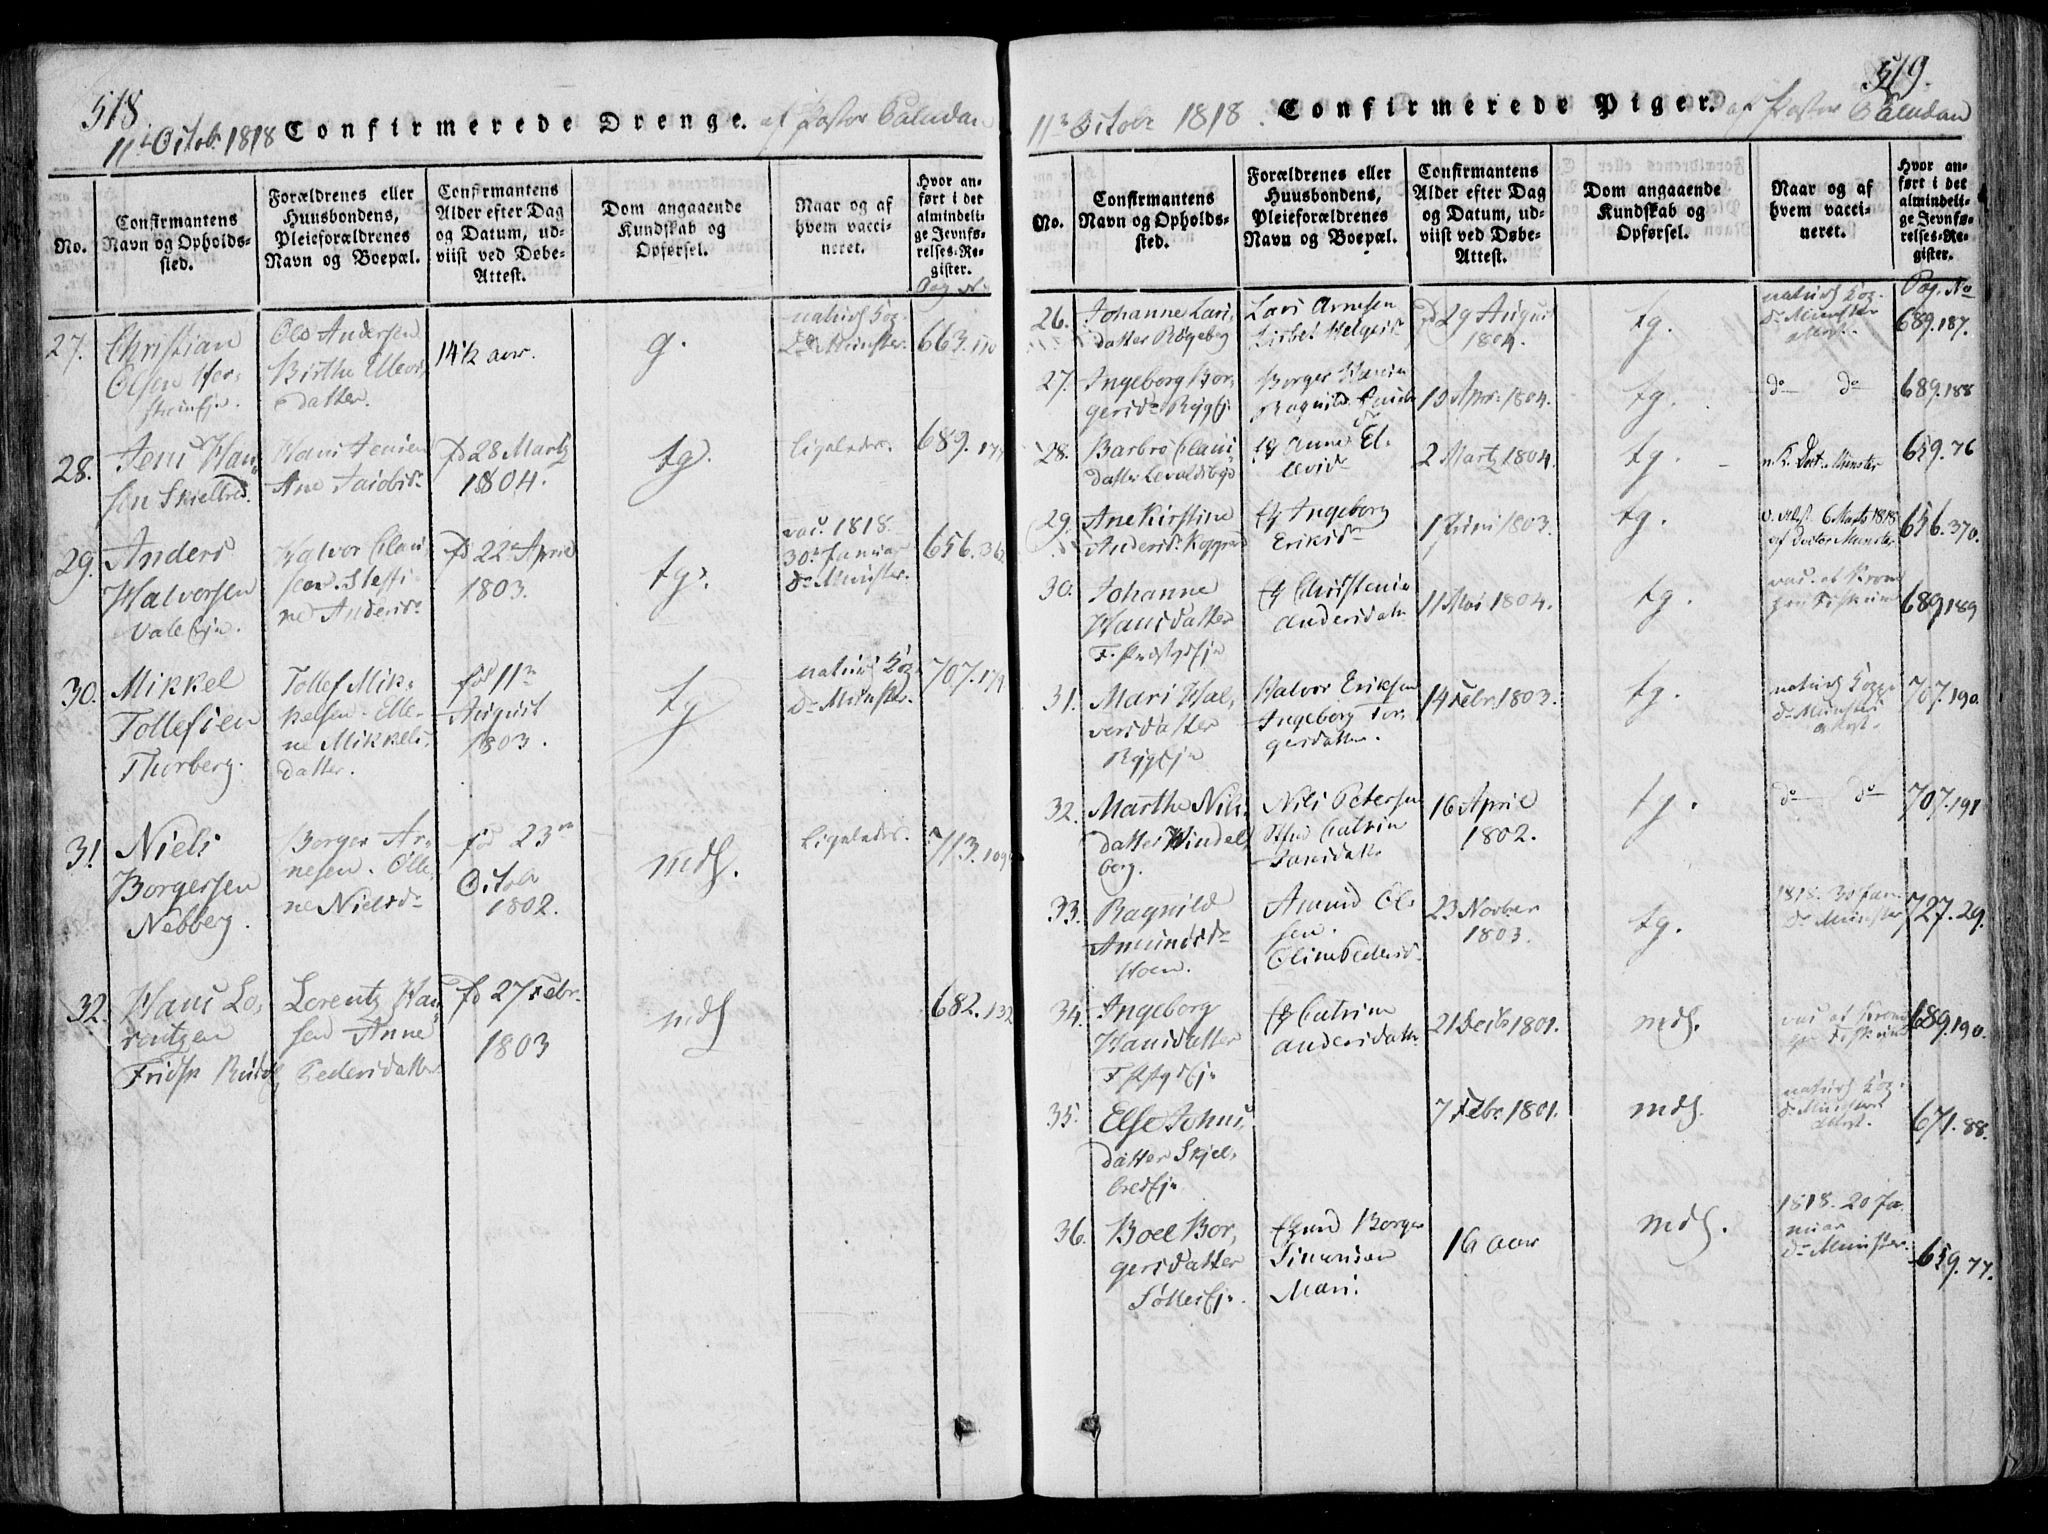 518
11te Octobr 1818 Confirmerede Drenge. af Pastor Paludan
No.
Confirmantens
Navn og Opholds-
sted.
Forældrenes eller
Huusbondens,
Pleieforældrenes
Navn og Boepæl.
Confirmantens
Alder efter Dag
og Datum, ud-
viist ved Døbe-
Attest.
Dom angaaende
Kundskab og
Opførsel.
Naar og af
hvem vacci-
neret.
Hvor an-
ført i det
almindeli-
ge Jevnfø-
relses-Re-
gister.
Pag. No
27.
Christian
Olsen
Ole Andersen
Birthe Ellevs
datter.
14 1/2 aar.
g.
naturl Kop.
Dr Münster.
663.
28.
Jens Han-
sen Skielbred.
Hans Jensen
Ane Jacobsdr
fd 28 Martz
1804.
tg.
ligeledes.
689.
29.
Anders
Halvorsen
Vale Eje.
Halvor Claus
sen Steffi
ne Andersdr
fd 22 April
1803.
tg.
vac. 1818
30 Januar
Dr Münster.
656.
30.
Mikkel
Tollefsen
Thorberg.
Tollef Mik-
kelsen. Elle-
ne Mikkels-
datter.
fød 11te
August
1803.
tg
naturl Kop
Dr Münster.
707.179
31
Niels
Borgersen
Nebberg.
Borger Ar-
nesen. Elle-
ne Nielsdr
fød 23de
Octobr
1802.
mdl.
ligeledes.
713.
32.
Hans Lo-
rentzen
Lorentz Han
sen Anne
Pedersdatter
fd 27 Febr.
1803
mdl
682.132
519.
11te Octobr 1818. Confirmerede Piger. af Pastor Paludan
No.
Confirmantens
Navn og Opholds-
sted.
Forældrenes eller
Huusbondens,
Pleieforældrenes
Navn og Boepæl.
Confirmantens
Alder efter Dag
og Datum, ud-
viist ved Døbe-
Attest.
Dom angaaende
Kundskab og
Opførsel.
Naar og af
hvem vacci-
neret.
Hvor an-
ført i det
almindeli-
ge Jevnfø-
relses-Re-
gister.
Pag. No
26.
Johanne Lars-
datter Røgeberg
Lars Arnesen
Lisbet Helgesdr
fd 29 August
1804.
tg.
naturl Kop.
Dr Münster
attest.
689.187.
27.
Ingeborg Bor-
gersdr
Borger Hansen
Ragnild
19 Apr. 1804.
tg.
do do
689.188
28.
Barbro Claus
datter
Anne El-
levsdr
2 Martz 1804.
tg.
Münster
659.76
29.
Ane Kirstine
Andersdr
Ingeborg
Eriksdr
1 Juni 1803.
tg.
6 Marts 1818
af Doctor Münster
656.370.
30.
Johanne
Hansdatter
Christense
Andersdatr
11 Mai 1804.
tg.
vac. af
689.189
31.
Mari Hal-
vorsdatter
Halvor Eriksen
Ingeborg Tor-
gersdatter.
14 Febr. 1803.
tg.
naturl Kopp.
Dr Münster
attest.
707.190.
32.
Marthe Nils-
datter Windel-
berg.
Nils Petersen
Catrin
Hansdatr
16 April
1802.
tg.
do do
707.191
33.
Ragnild
Amundsdr
Hoen.
Amund Ol-
sen.
Oline Pedersdr
23 Novber
1803.
tg.
1818. 30 Jan
Dr Münster
727.29.
34.
Ingeborg
Hansdatter
Catrine
Andersdatr
21 Decbr 1801.
mdl.
vac. af
689.190.
35.
Else Johns-
datter Skjel-
bredEje
7 Febr. 1801.
mdl.
naturl Kop.
Dr Münster
attest.
671.88.
36.
Boel Bor-
gersdatter
Borger
Simensen
Mari.
16 aar
mdl.
1818. 20 Ja
nuar
Dr Münster.
659.77.